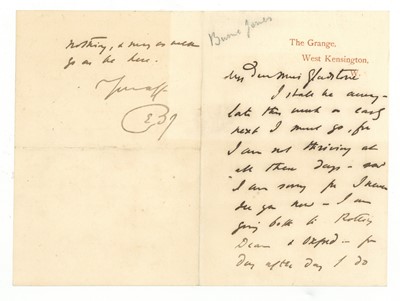 Burne Jones
The Grange,
West Kensington,
W.
My Dear Miss Gladstone
I shall be away
late this week or early
next I must go, for
I am not thriving at
all these days – and
I am sorry for I never
see you now – I am
going both to Rotting
Dean & Oxford – for
day after day I do
nothing, & may as well
go as be here.
Your aff
EBJ